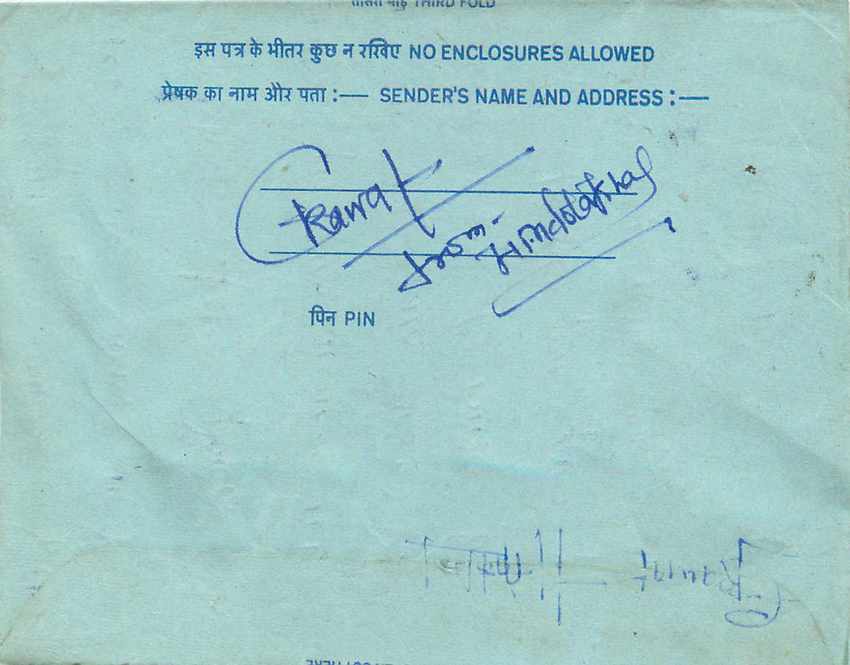 तीसरा मोड़ THIRD FOLD
इस पत्र के भीतर कुछ न रखिए NO ENCLOSURES ALLOWED
प्रेषक का नाम और पता :— SENDER'S NAME AND ADDRESS :—
Rawat
from:- Hindolakhal
पिन PIN
Rawat